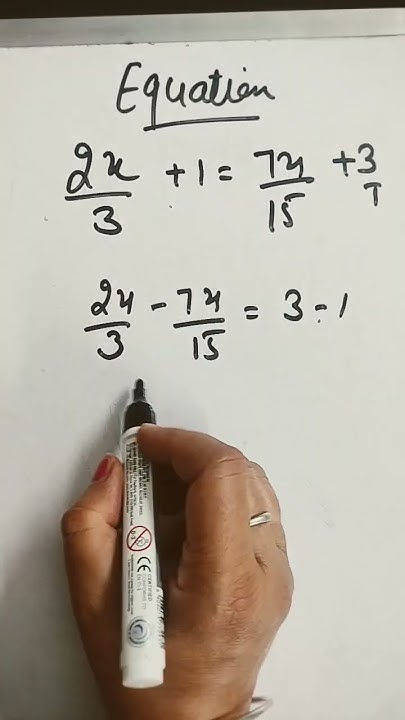 Equation
2x/3 + 1 = 7x/15 + 3
2x/3 - 7x/15 = 3 - 1
CE